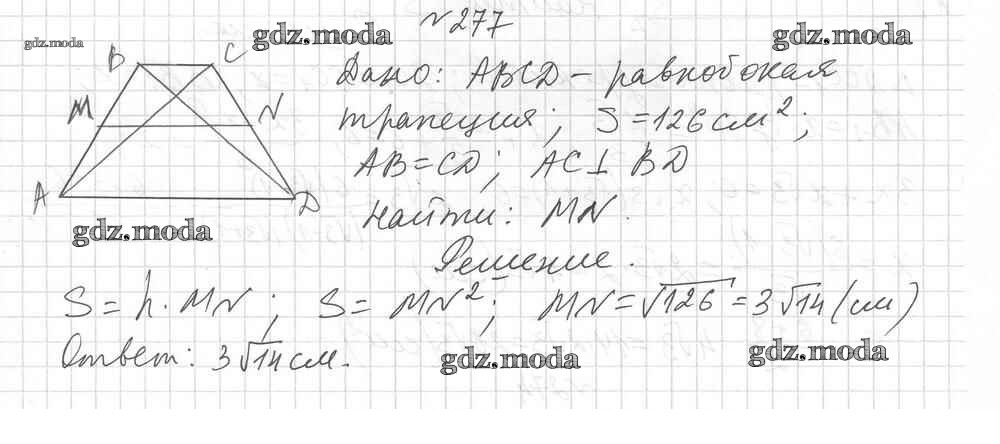 №277
gdz.moda
gdz.moda
gdz.moda
B C
Дано: ABCD - равнобокая
M N
трапеция; S=126 см²;
AB=CD; AC⊥BD
A D
Найти: MN.
gdz.moda
Решение.
S=h·MN; S=MN²; MN=√126=3√14(см)
Ответ: 3√14 см.
gdz.moda
gdz.moda